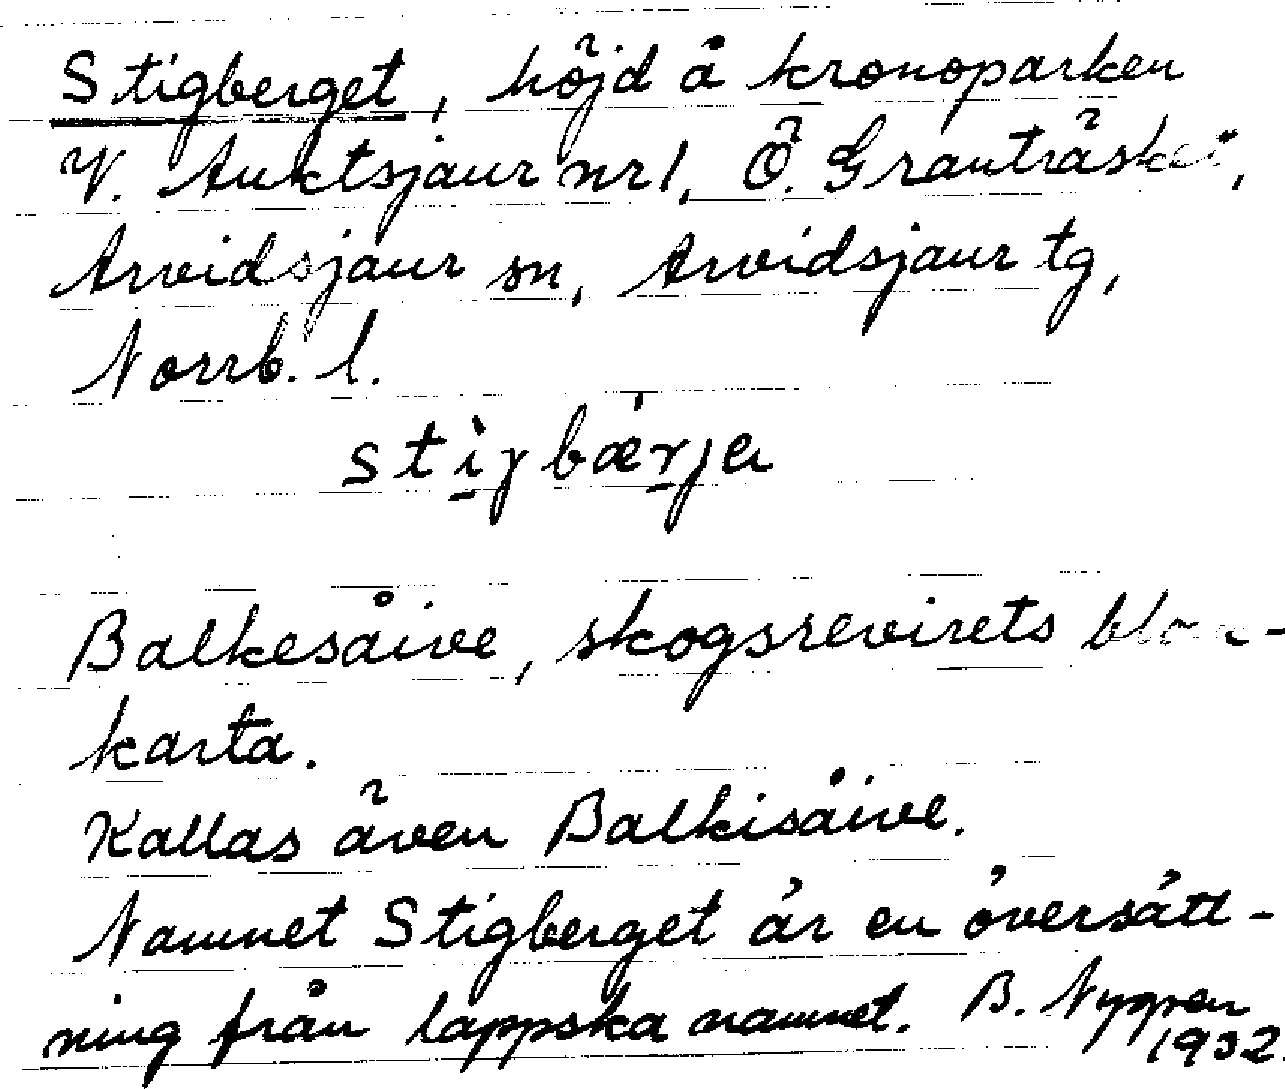 Stigberget, höjd å kronoparken
V. Auktsjaur nr 1, Ö. Granträsket,
Arvidsjaur sn, Arvidsjaur tg,
Norrb. l.
stiɣbærja
Balkesåive, skogsrevirets
karta.
Kallas även Balkisåive.
Namnet Stigberget är en översätt-
ning från lappska namnet. B. Nygren
1932.